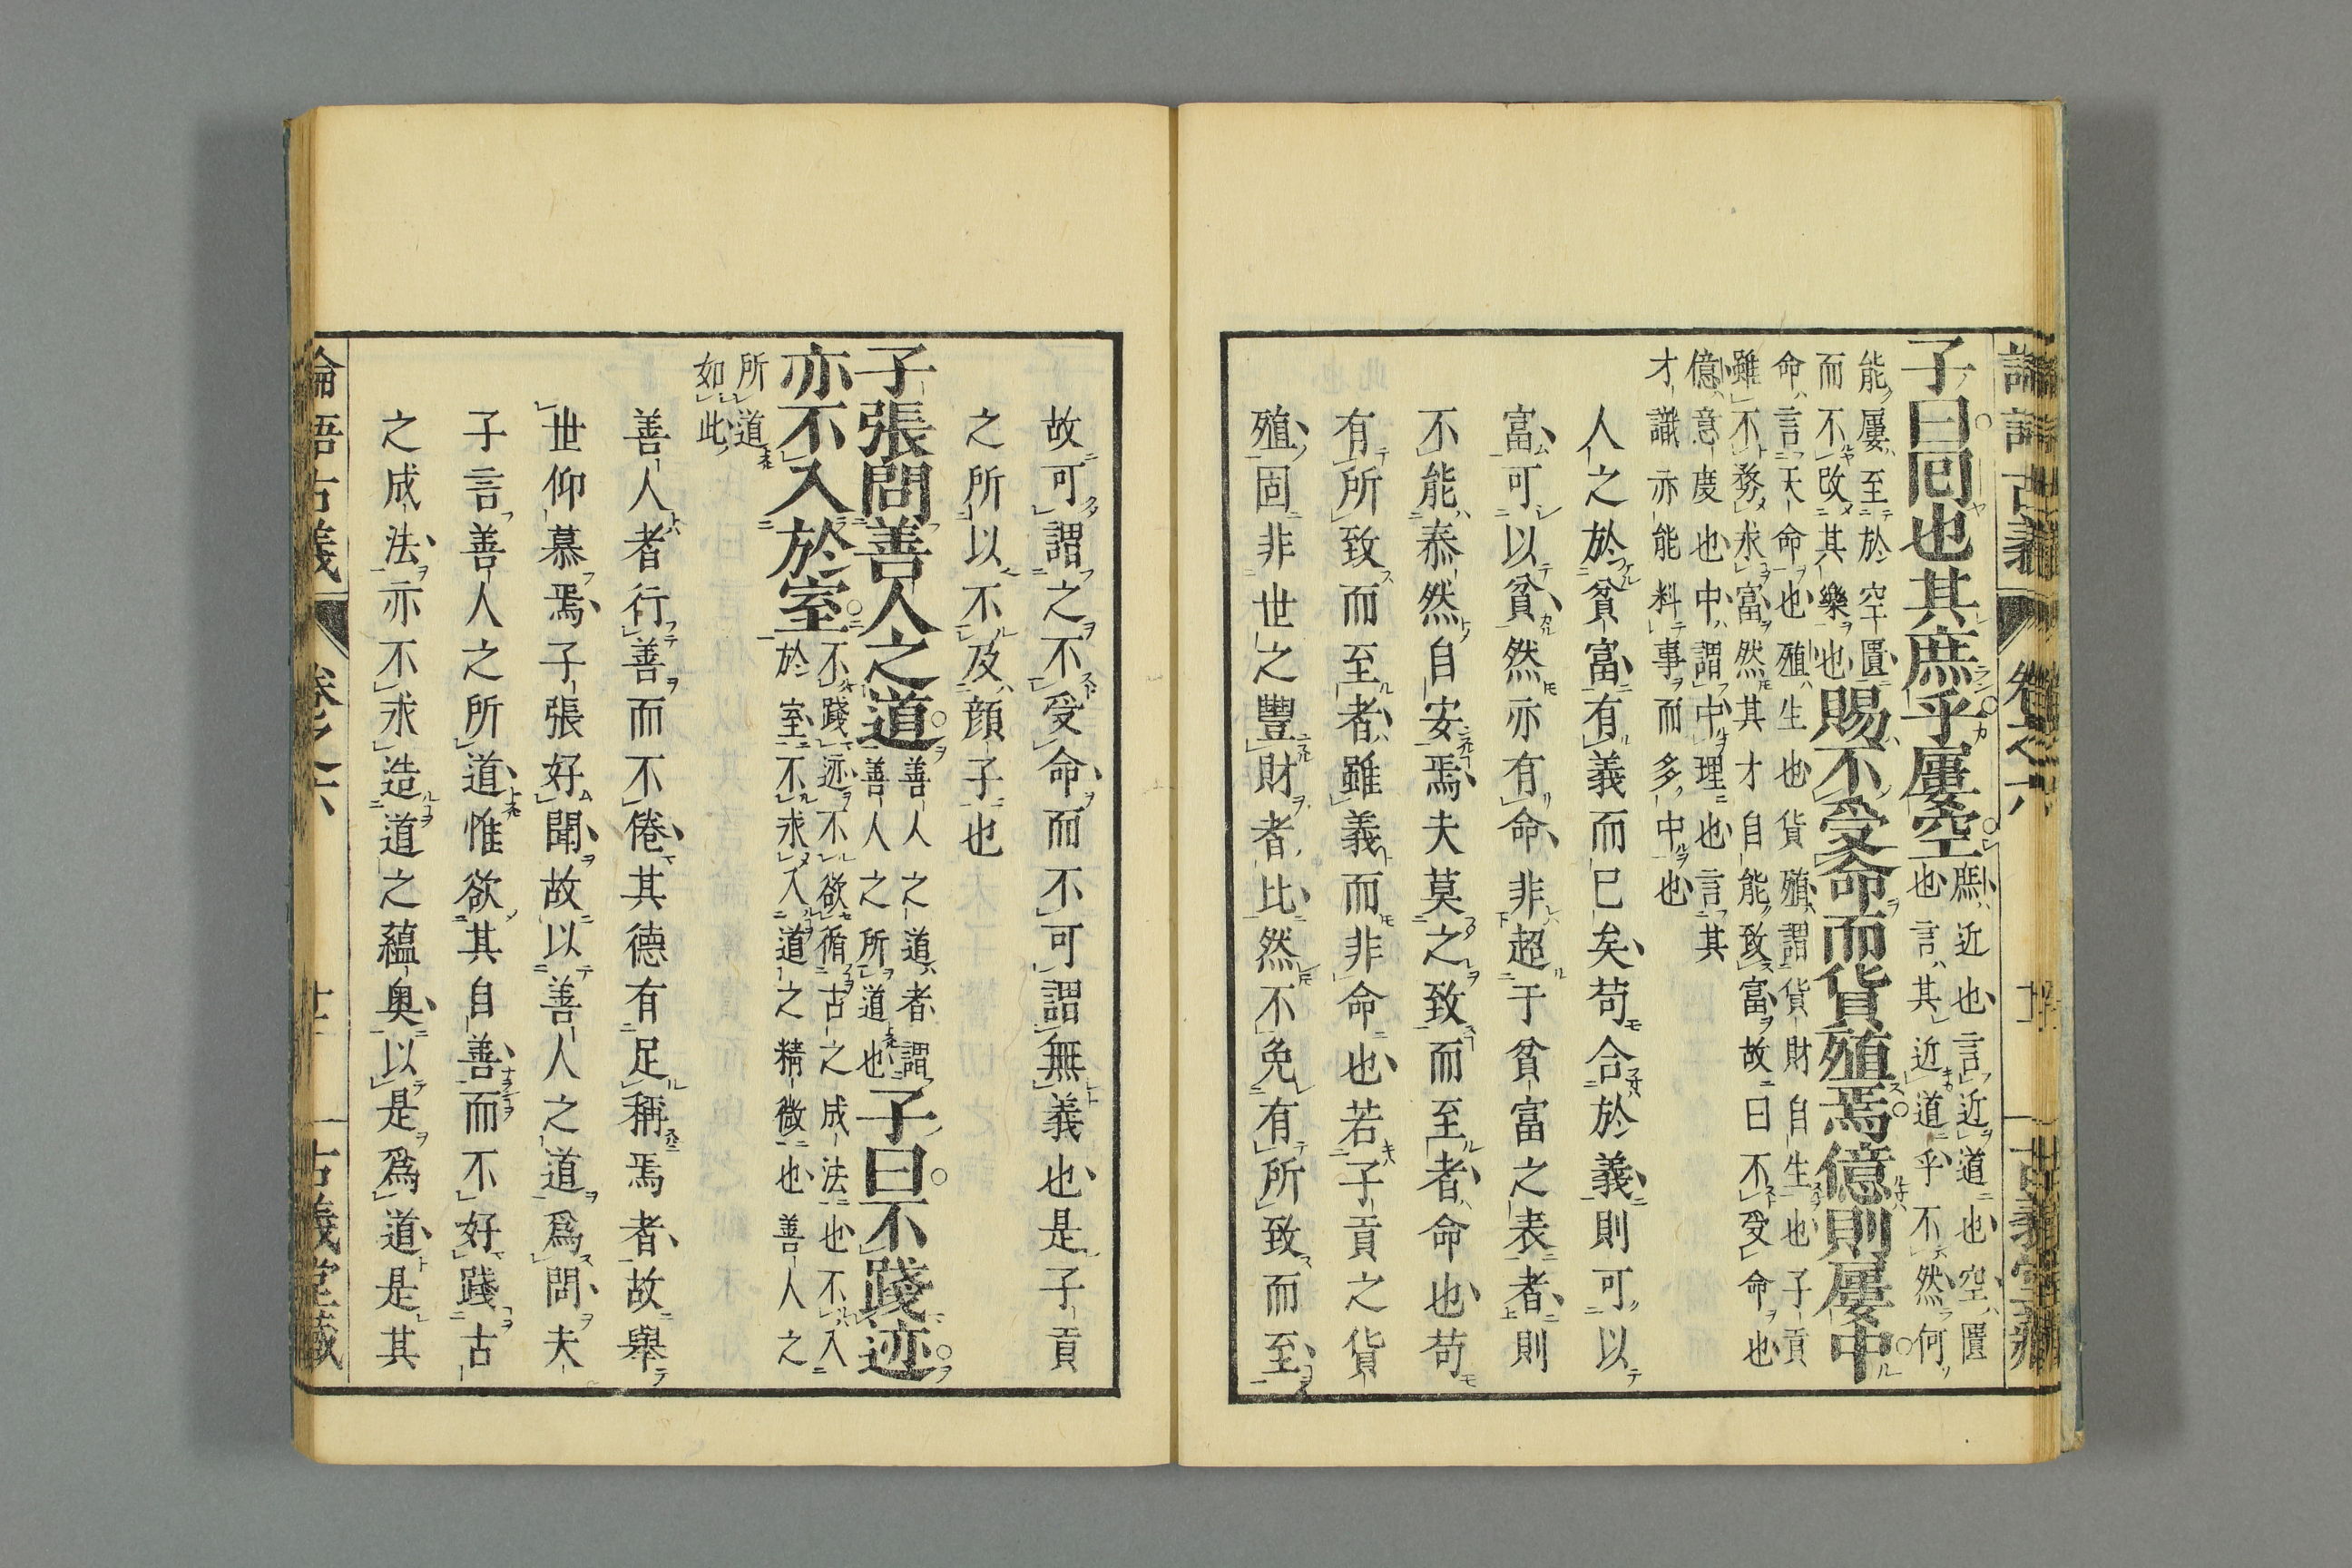 論語古義 卷之六 古義堂藏
子曰囘也其庶乎屢空
庶近也言近道也空匱
也言其近道乎不然何
能屢至於空匱
而不改其樂也
賜不受命而貨殖焉億則屢中
命言天命也殖生也貨殖謂貨財自生也子貢
雖不務求富然其才自能致富故曰不受命也
億意度也中謂中理也言其
才識亦能料事而多中也
人之於貧富有義而已矣苟合於義則可以
富可以貧然亦有命非超于貧富之表者則
不能泰然自安焉夫莫之致而至者命也苟
有所致而至者雖義而非命也若子貢之貨
殖固非世之豐財者比然不免有所致而至
故可謂之不受命而不可謂無義也是子貢
之所以不及顔子也
子張問善人之道
善人之道者謂
善人之所道也
子曰不踐迹
亦不入於室
不踐迹不欲循古之成法也不入
於室不求入道之精微也善人之
所道
如此
善人者行善而不倦其德有足稱焉者故舉
世仰慕焉子張好聞故以善人之道爲問夫
子言善人之所道惟欲其自善而不好踐古
之成法亦不求造道之蘊奥以是爲道是其
論語古義 卷之六 古義堂藏